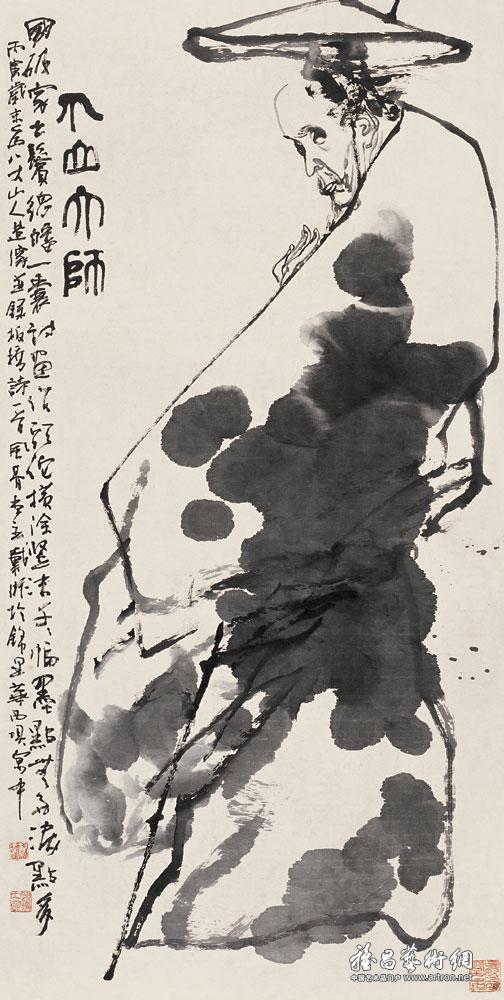 个山大師
國破家亡鬢總皤一囊詩畫作頭陀橫塗豎抹千千幅墨點無多淚點多
丙寅歲末為八大山人造像並錄板橋詩一首風骨堂主戴衛於錦里華西壩寓中
雅昌藝術網
中国艺术品门户 www.artron.net